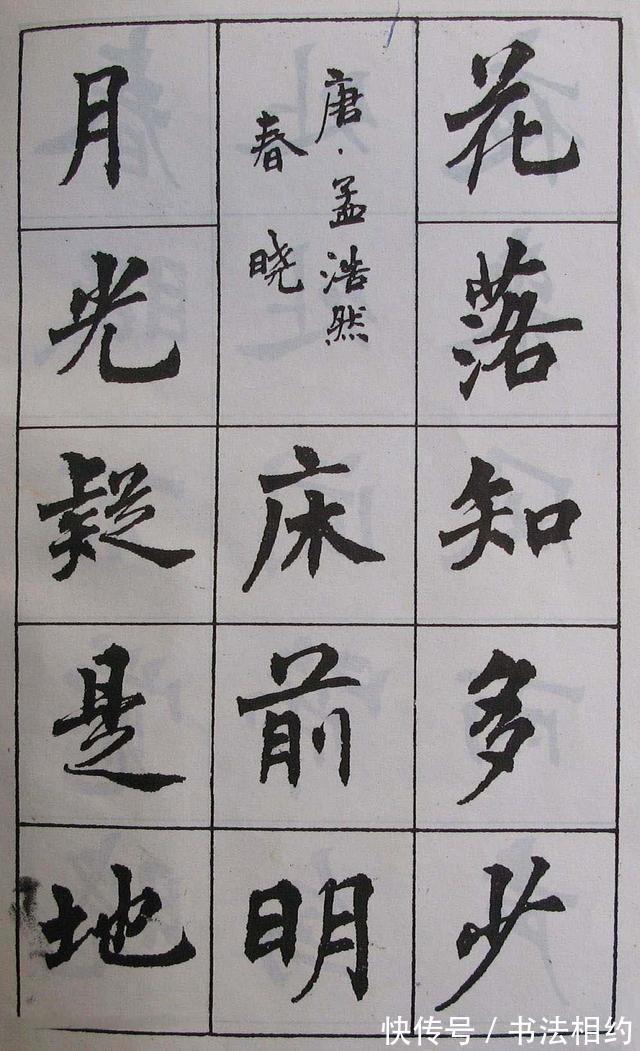 花落知多少
唐·孟浩然
春晓
床前明
月光疑是地
快传号/书法相约